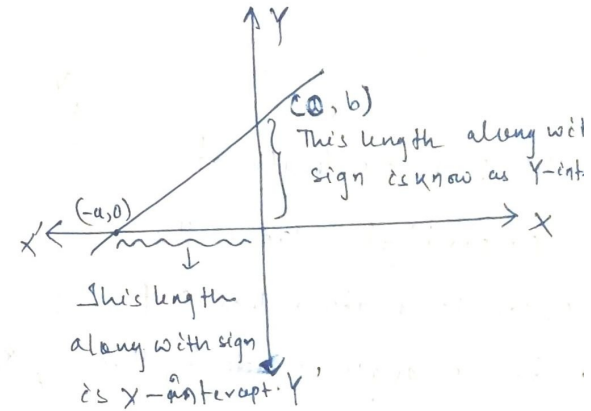 Y
(0, b)
This length along wit
sign is know as Y-int.
(-a,0)
X'
X
This length
along with sign
is X-intercept.
Y'